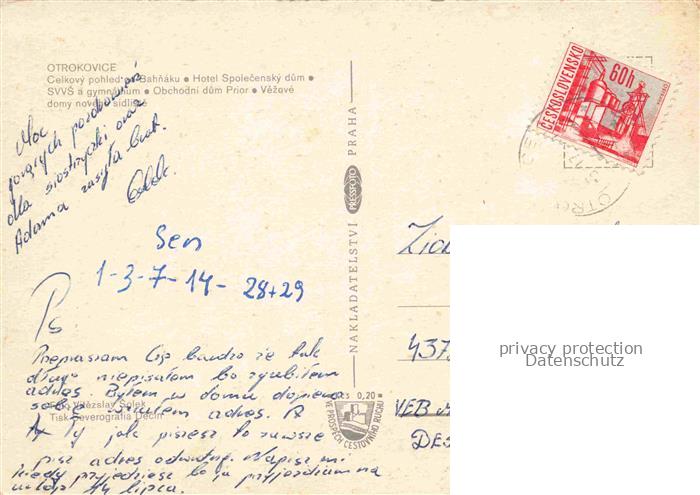 OTROKOVICE
Celkový pohled z Bahňáku • Hotel Společenský dům •
SVVŠ a gymnázium • Obchodní dům Prior • Věžové
domy nového sídliště
Moc
gorących pozdrowień
dla siostrzyczki oraz
Adama zasyła brat.
Sen
1-3-7-14- 28+29
Ps.
Przepraszam Cię bardzo że tak
długo niepisałem bo zgubiłem
adres. Byłem w domu dopiero
sobie wziąłem adres. A
Ty jak piszesz to zawsze
pisz adres odwrotny. Napisz mi
kiedy przyjedziesz bo ja przyjeżdżam na
urlop 14 lipca.
Foto Vítězslav Solek
Tisk Severografia Děčín
NAKLADATELSTVÍ PRESSFOTO PRAHA
Kčs 0,20
VE PROSPĚCH CESTOVNÍHO RUCHU
ČESKOSLOVENSKO
60h
OTRO
437
VEB
DES
privacy protection
Datenschutz